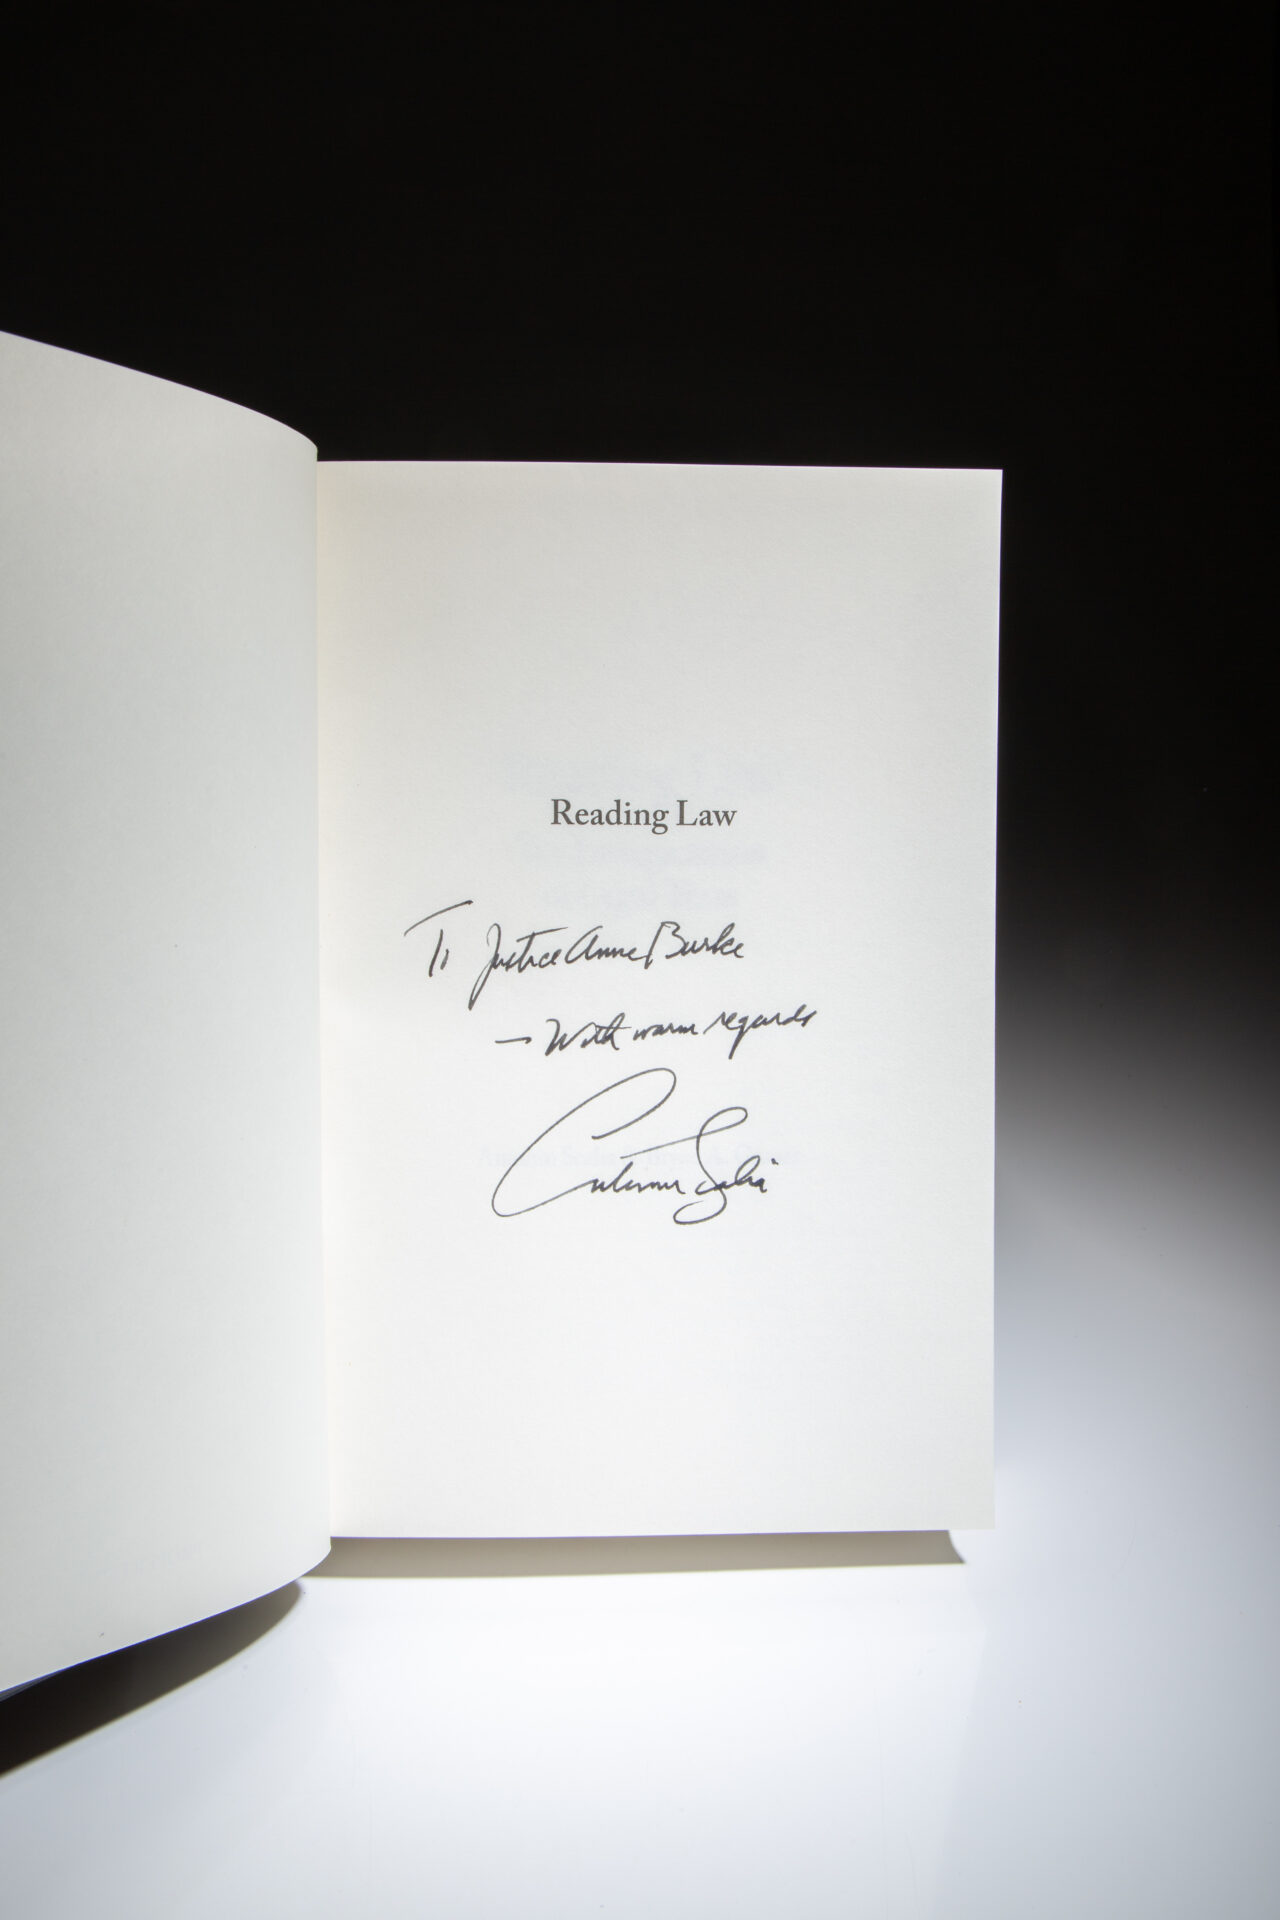 Reading Law
To Justice Anne Burke
— With warm regards
Antonin Scalia